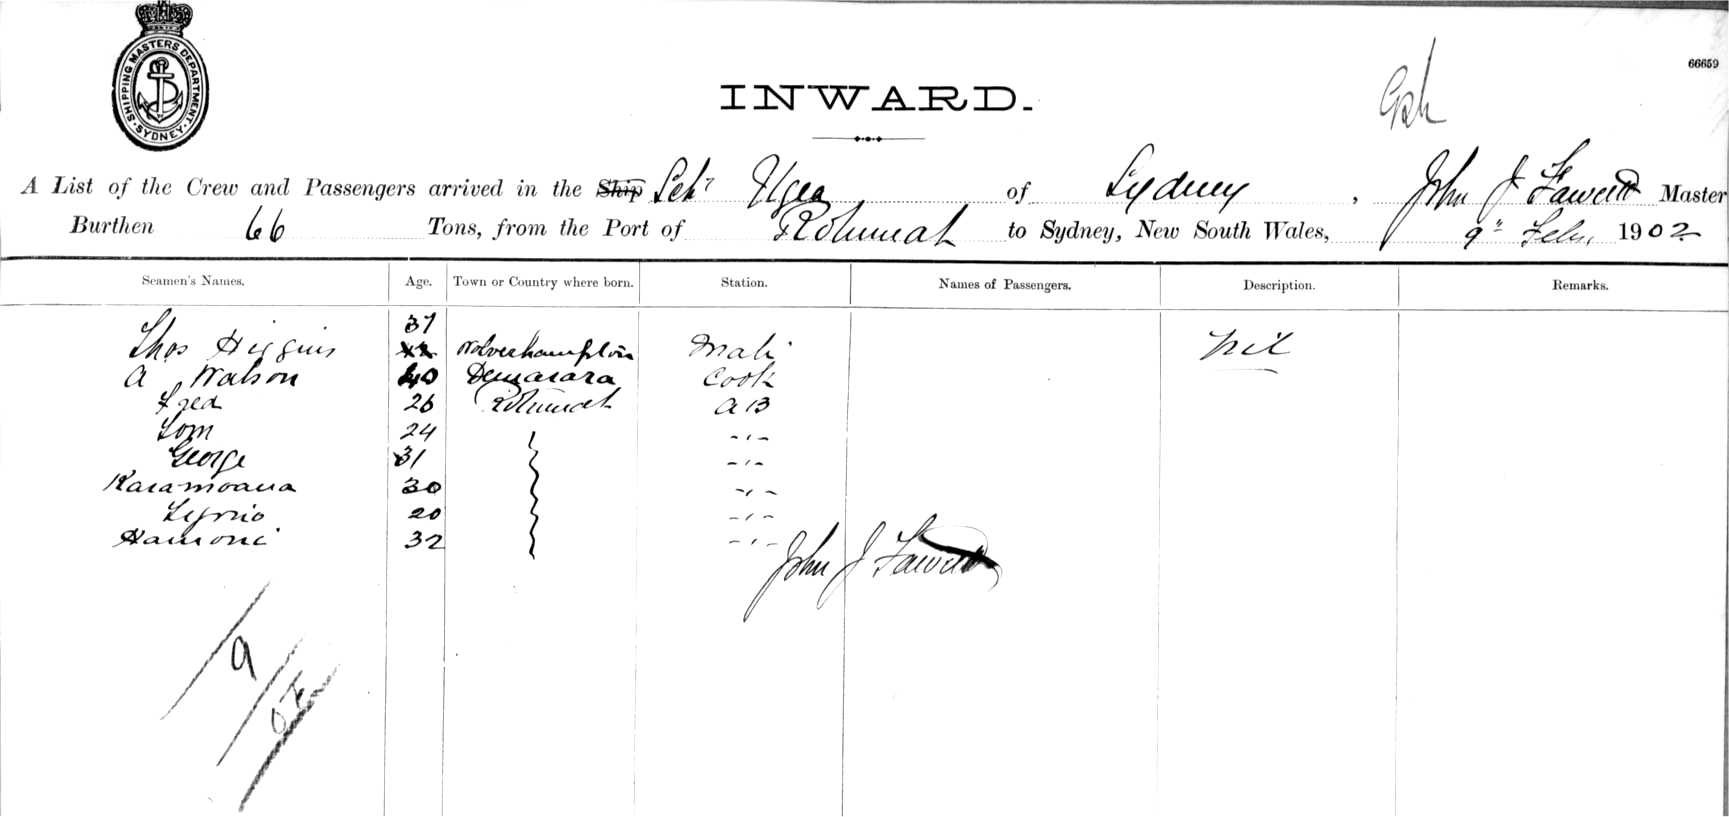 SHIPPING MASTERS DEPARTMENT. SYDNEY.
66659
INWARD.
A List of the Crew and Passengers arrived in the Ship Schr Ugea of Sydney, John J Fawcett Master
Burthen 66 Tons, from the Port of Rotumah to Sydney, New South Wales, 9th Feby 1902
Seamen's Names. Age. Town or Country where born. Station. Names of Passengers. Description. Remarks.
37
Thos Higgins Wolverhampton Mate Nil
A Watson 40 Demarara Cook
Fred 26 Rotumah A B
Tom 24 -"-
George 31 -"-
Karamoana 30 -"-
20 -"-
32 -"-
John J Fawcett
9